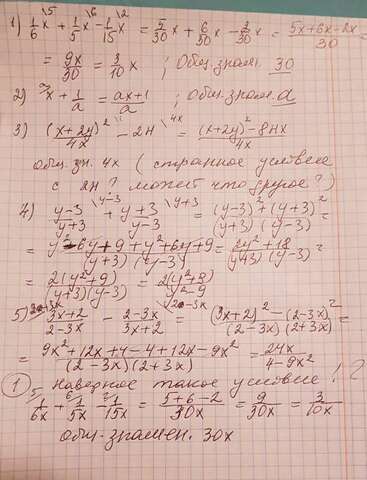 1) 1/6 x \5 + 1/5 x \6 - 1/15 x \2 = 5/30 x + 6/30 x - 2/30 x = (5x+6x-2x)/30 =
= 9x/30 = 3/10 x ; Общ. знам. 30
2) x + 1/a = (ax+1)/a ; Общ. знам. a
3) (x+2y)²/4x \1 - 2H \4x = ((x+2y)² - 8Hx)/4x
общ. зн. 4x ( странное условие
с 2H? может что другое?)
4) (y-3)/(y+3) \y-3 + (y+3)/(y-3) \y+3 = ((y-3)²+(y+3)²)/((y+3)(y-3)) =
= (y²-6y+9+y²+6y+9)/((y+3)(y-3)) = (2y²+18)/((y+3)(y-3)) =
= 2(y²+9)/((y+3)(y-3)) = 2(y²+9)/(y²-9)
5) (3x+2)/(2-3x) - (2-3x)/(3x+2) \2-3x = ((3x+2)²-(2-3x)²)/((2-3x)(2+3x)) =
= (9x²+12x+4-4+12x-9x²)/((2-3x)(2+3x)) = 24x/(4-9x²)
1) Наверное такое условие!?
5/ 1/6x + 6/ 1/5x - 2/ 1/15x = (5+6-2)/30x = 9/30x = 3/10x
общ. знамен. 30x